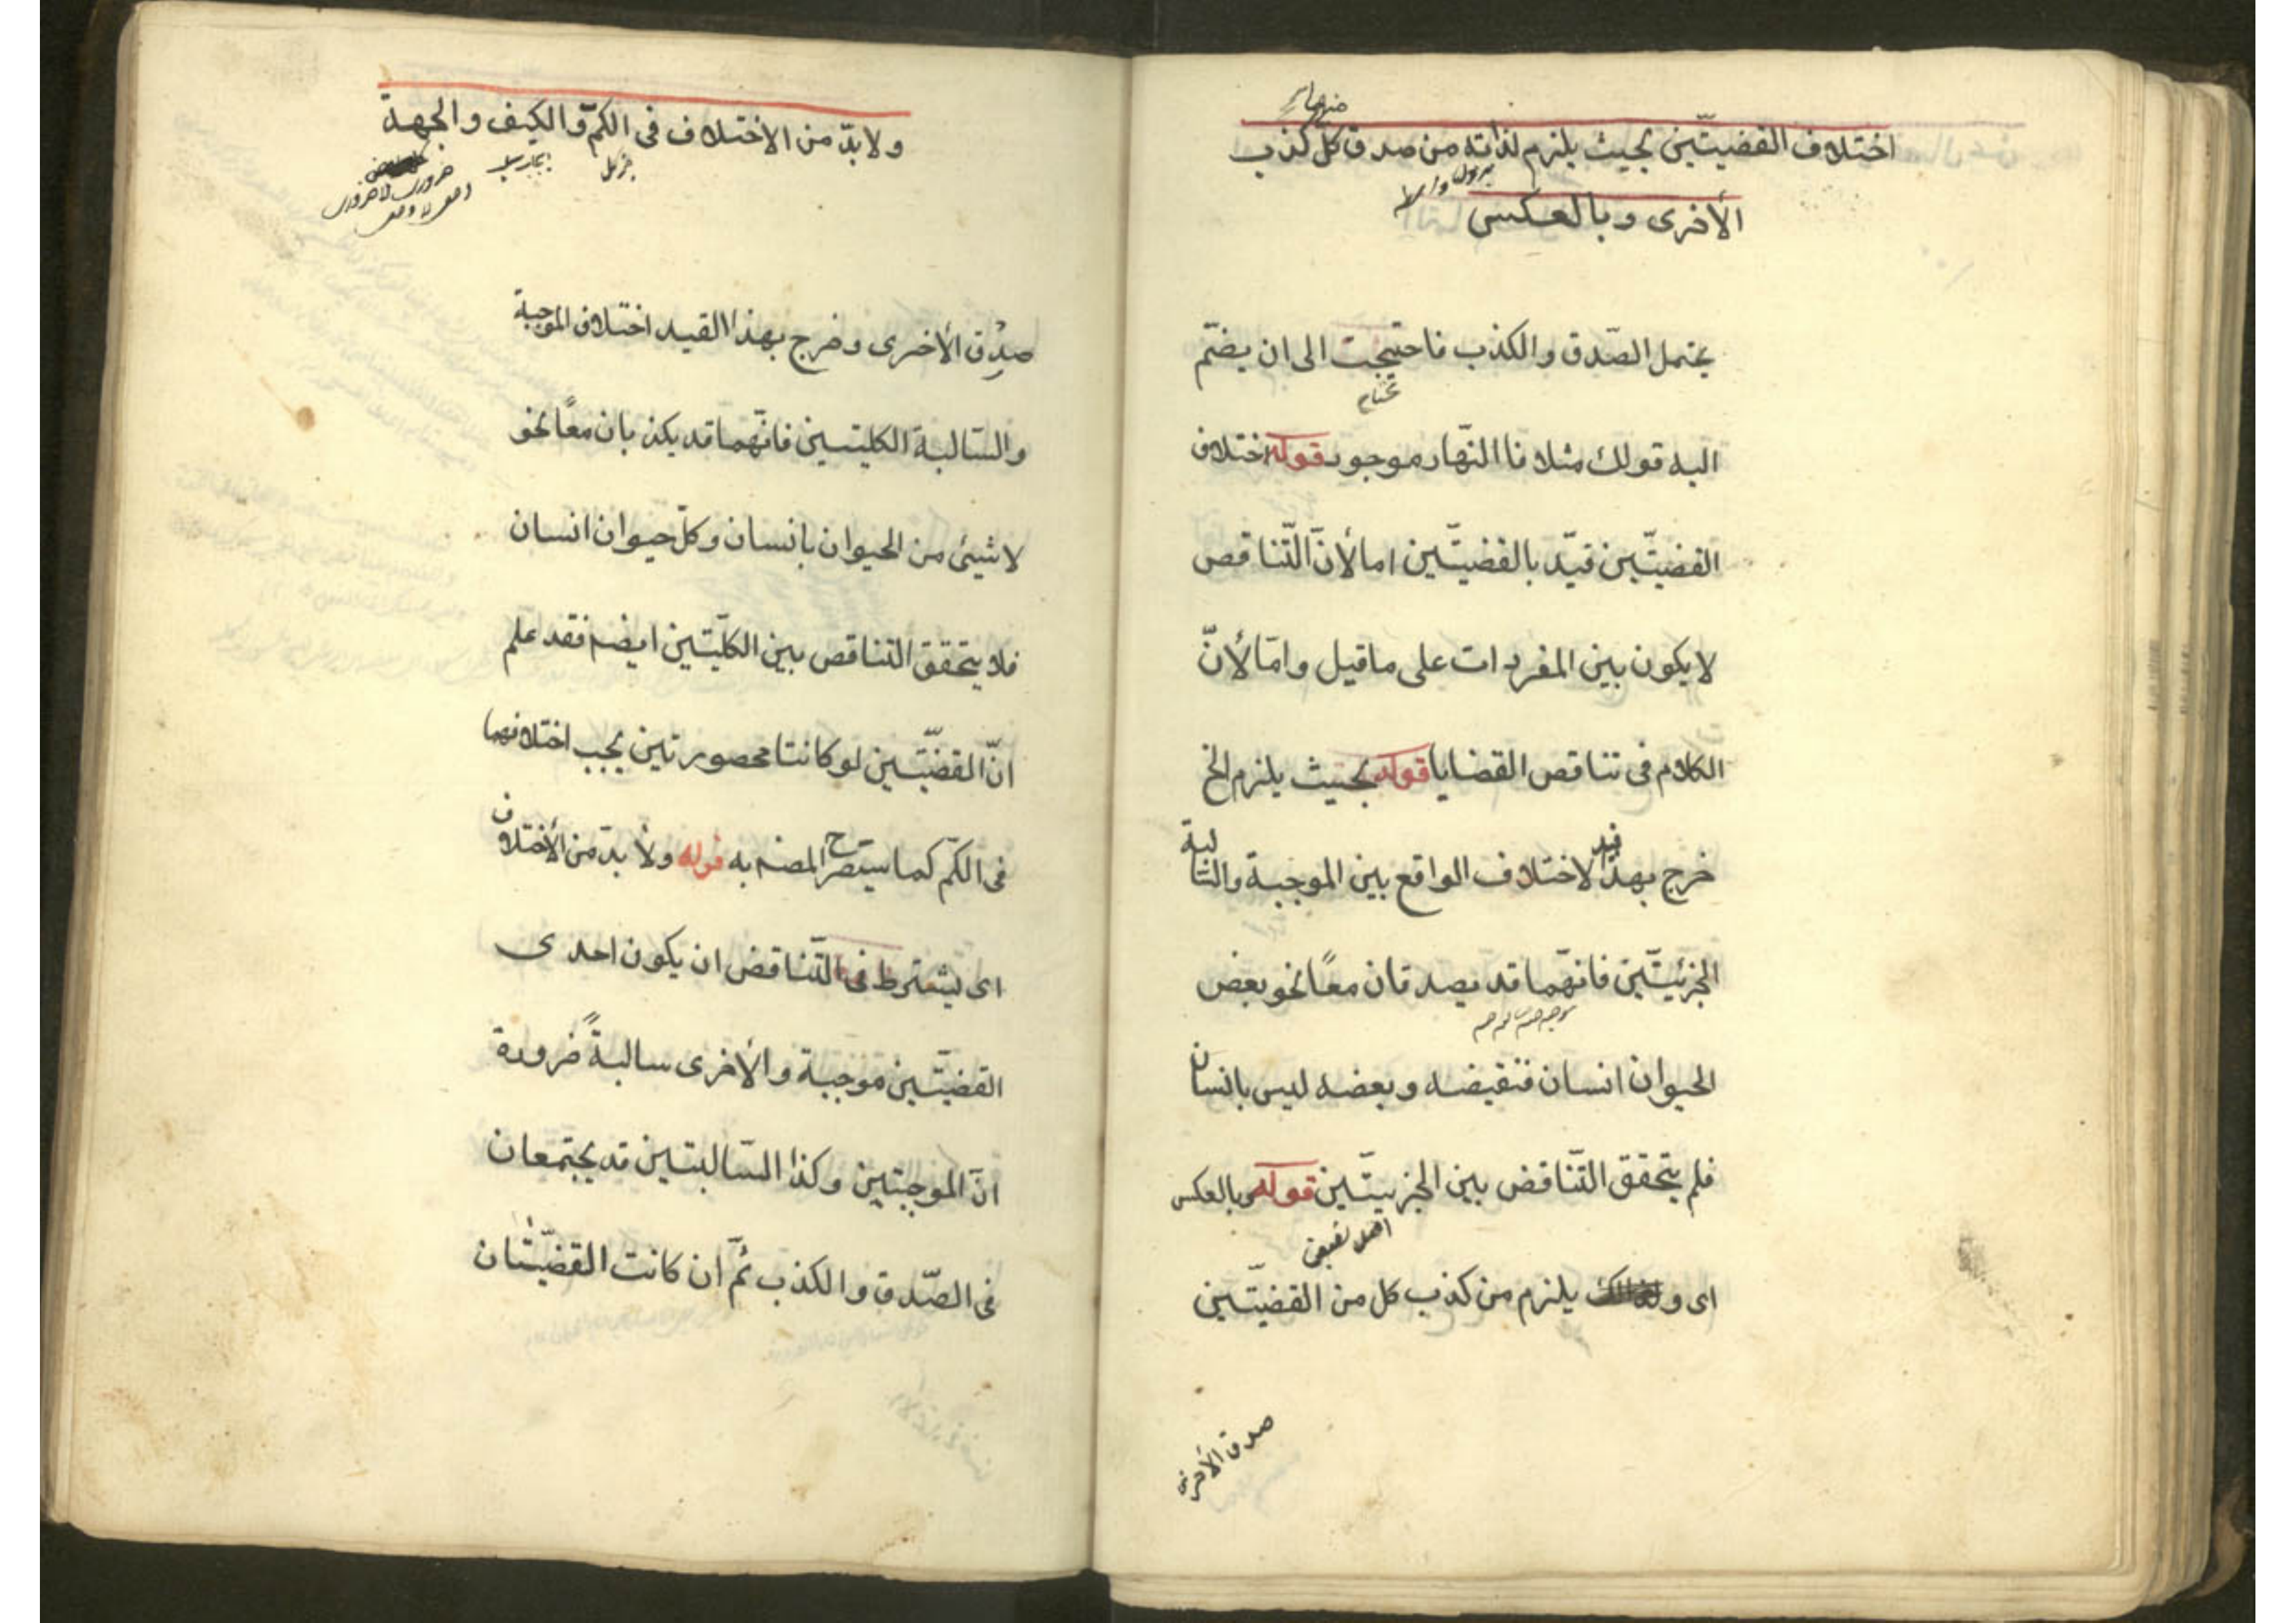 اختلاف القضيتّين بحيث يلزم لذاته من صدق كل كذب
الأخرى وبالعكس
يحتمل الصّدق والكذب فاحتيجت الى ان يضمّ
اليه قولك مثلا فا النّهار موجود قوله اختلاف
القضيتّين قيّد بالقضيتّين اما لأنّ التّناقص
لا يكون بين المفردات على ما قيل وامّا لأنّ
الكلام فى تناقص القضايا قوله بحيث يلزم الخ
خرج بهذا قيد لاختلاف الواقع بين الموجبة والسالبة
الجزئيتّين فانّهما قد يصدقان معًا نحو بعض
الحيوان انسان فنقيضه وبعضه ليس بانسان
فلم يتحقق التّناقض بين الجزييتّين قوله وبالعكس
اى و يلزم من كذب كل من القضيتّين
صدق الأخرى
ولا بدّ من الاختلاف فى الكمّ والكيف والجهة
صدق الأخرى وخرج بهذا القيد اختلاف الموجبة
والسّالبة الكليتين فانّهما قد يكذبان معًا نحو
لا شيئ من الحيوان بانسان وكلّ حيوان انسان
فلا يتحقق التناقص بين الكلّيتين ايضه فقد علم
انّ القضيّتين لو كانتا محصورتين يجب اختلافهما
فى الكمّ كما سيتصرح المصنه به قوله ولا بدّ من الأختلاف
اى يشترط فى التّناقض ان يكون احدى
القضيّتين موجبة والأخرى سالبةً ضرورة
انّ الموجبتين وكذا السّالبتين قد يجتمعان
فى الصّدق والكذب ثمّ ان كانت القضيّتان